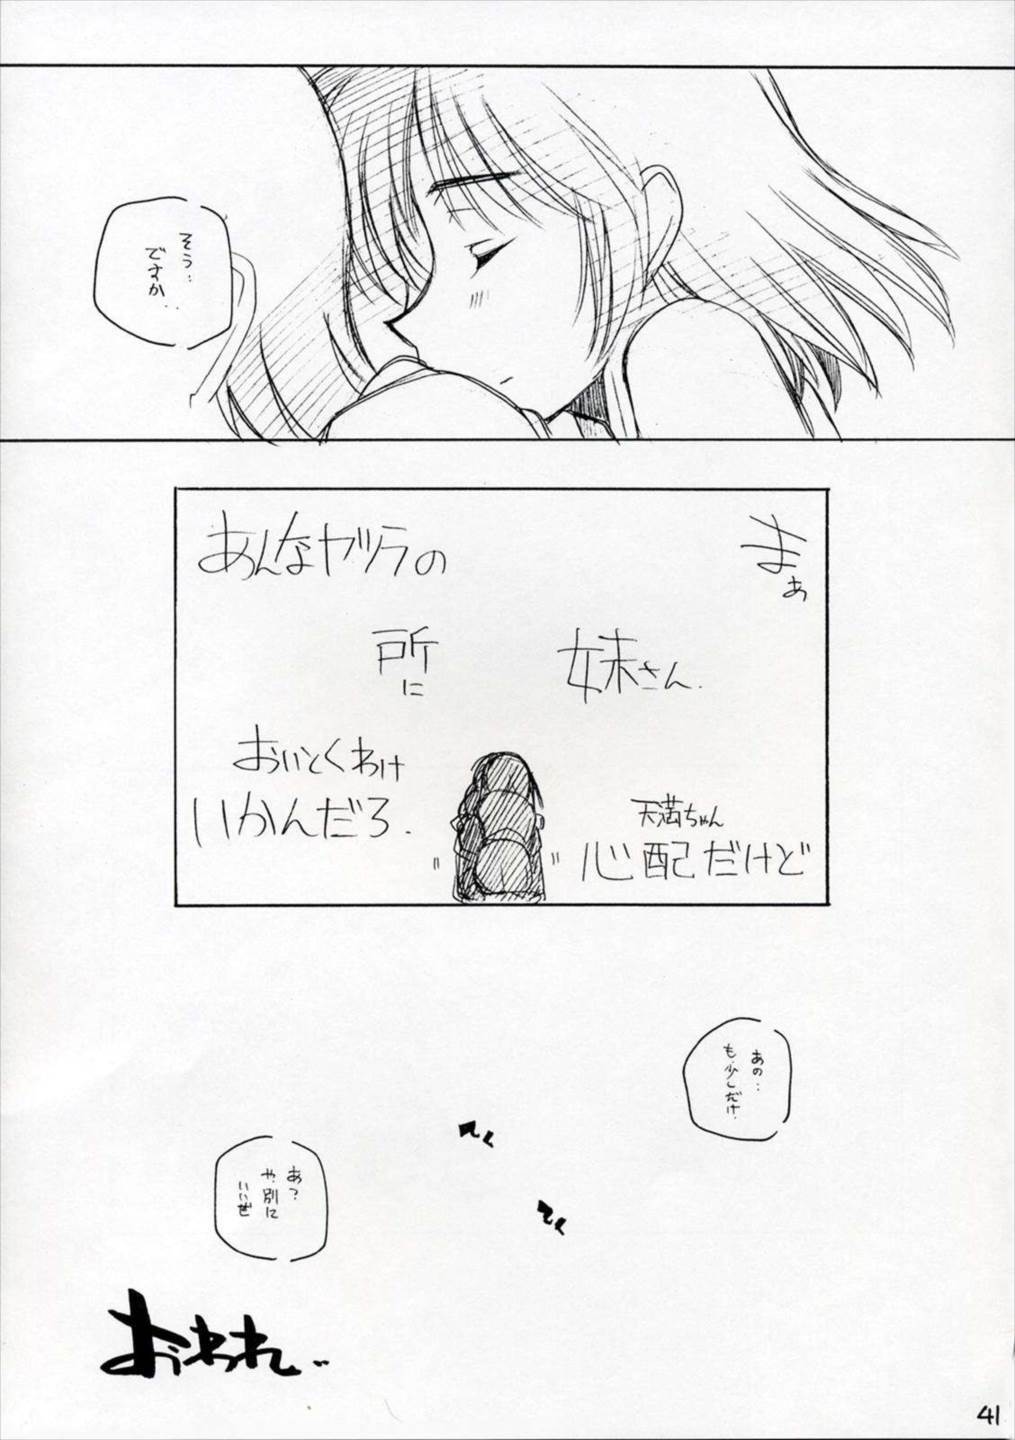 そう‥
ですか‥
まぁ
妹さん.
天満ちゃん
心配だけど
あんなヤツラの
所に
おいとくわけ
いかんだろ.
あの‥
も少しだけ.
てく
てく
あ?
や.別に
いいぜ
おわれ‥
41